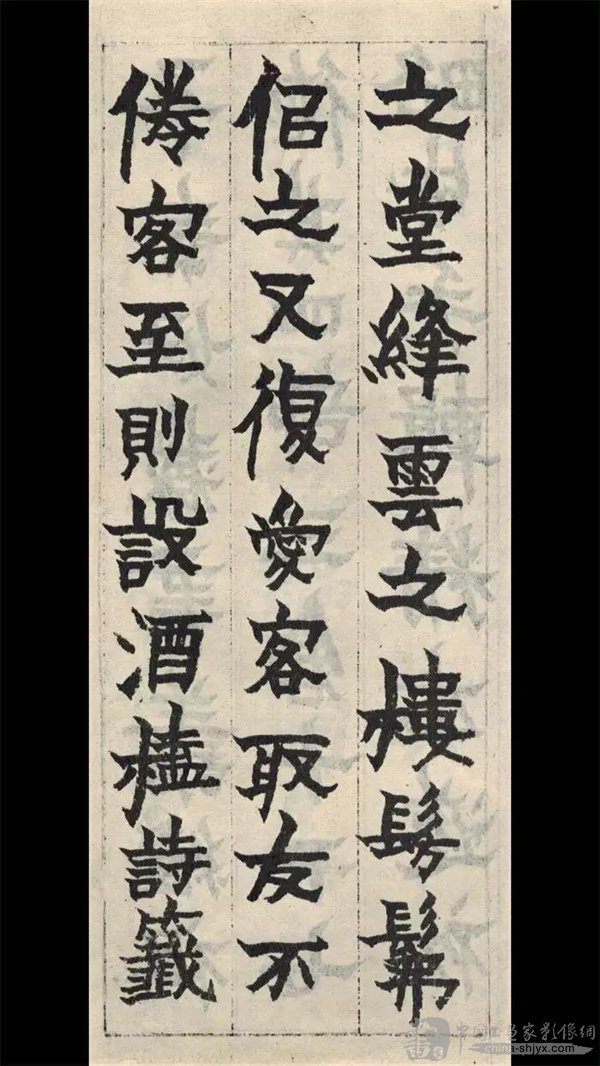 之堂絳雲之樓髣髴
佀之又復愛客取友不
倦客至則設酒榼詩籤
china-shjyx.com